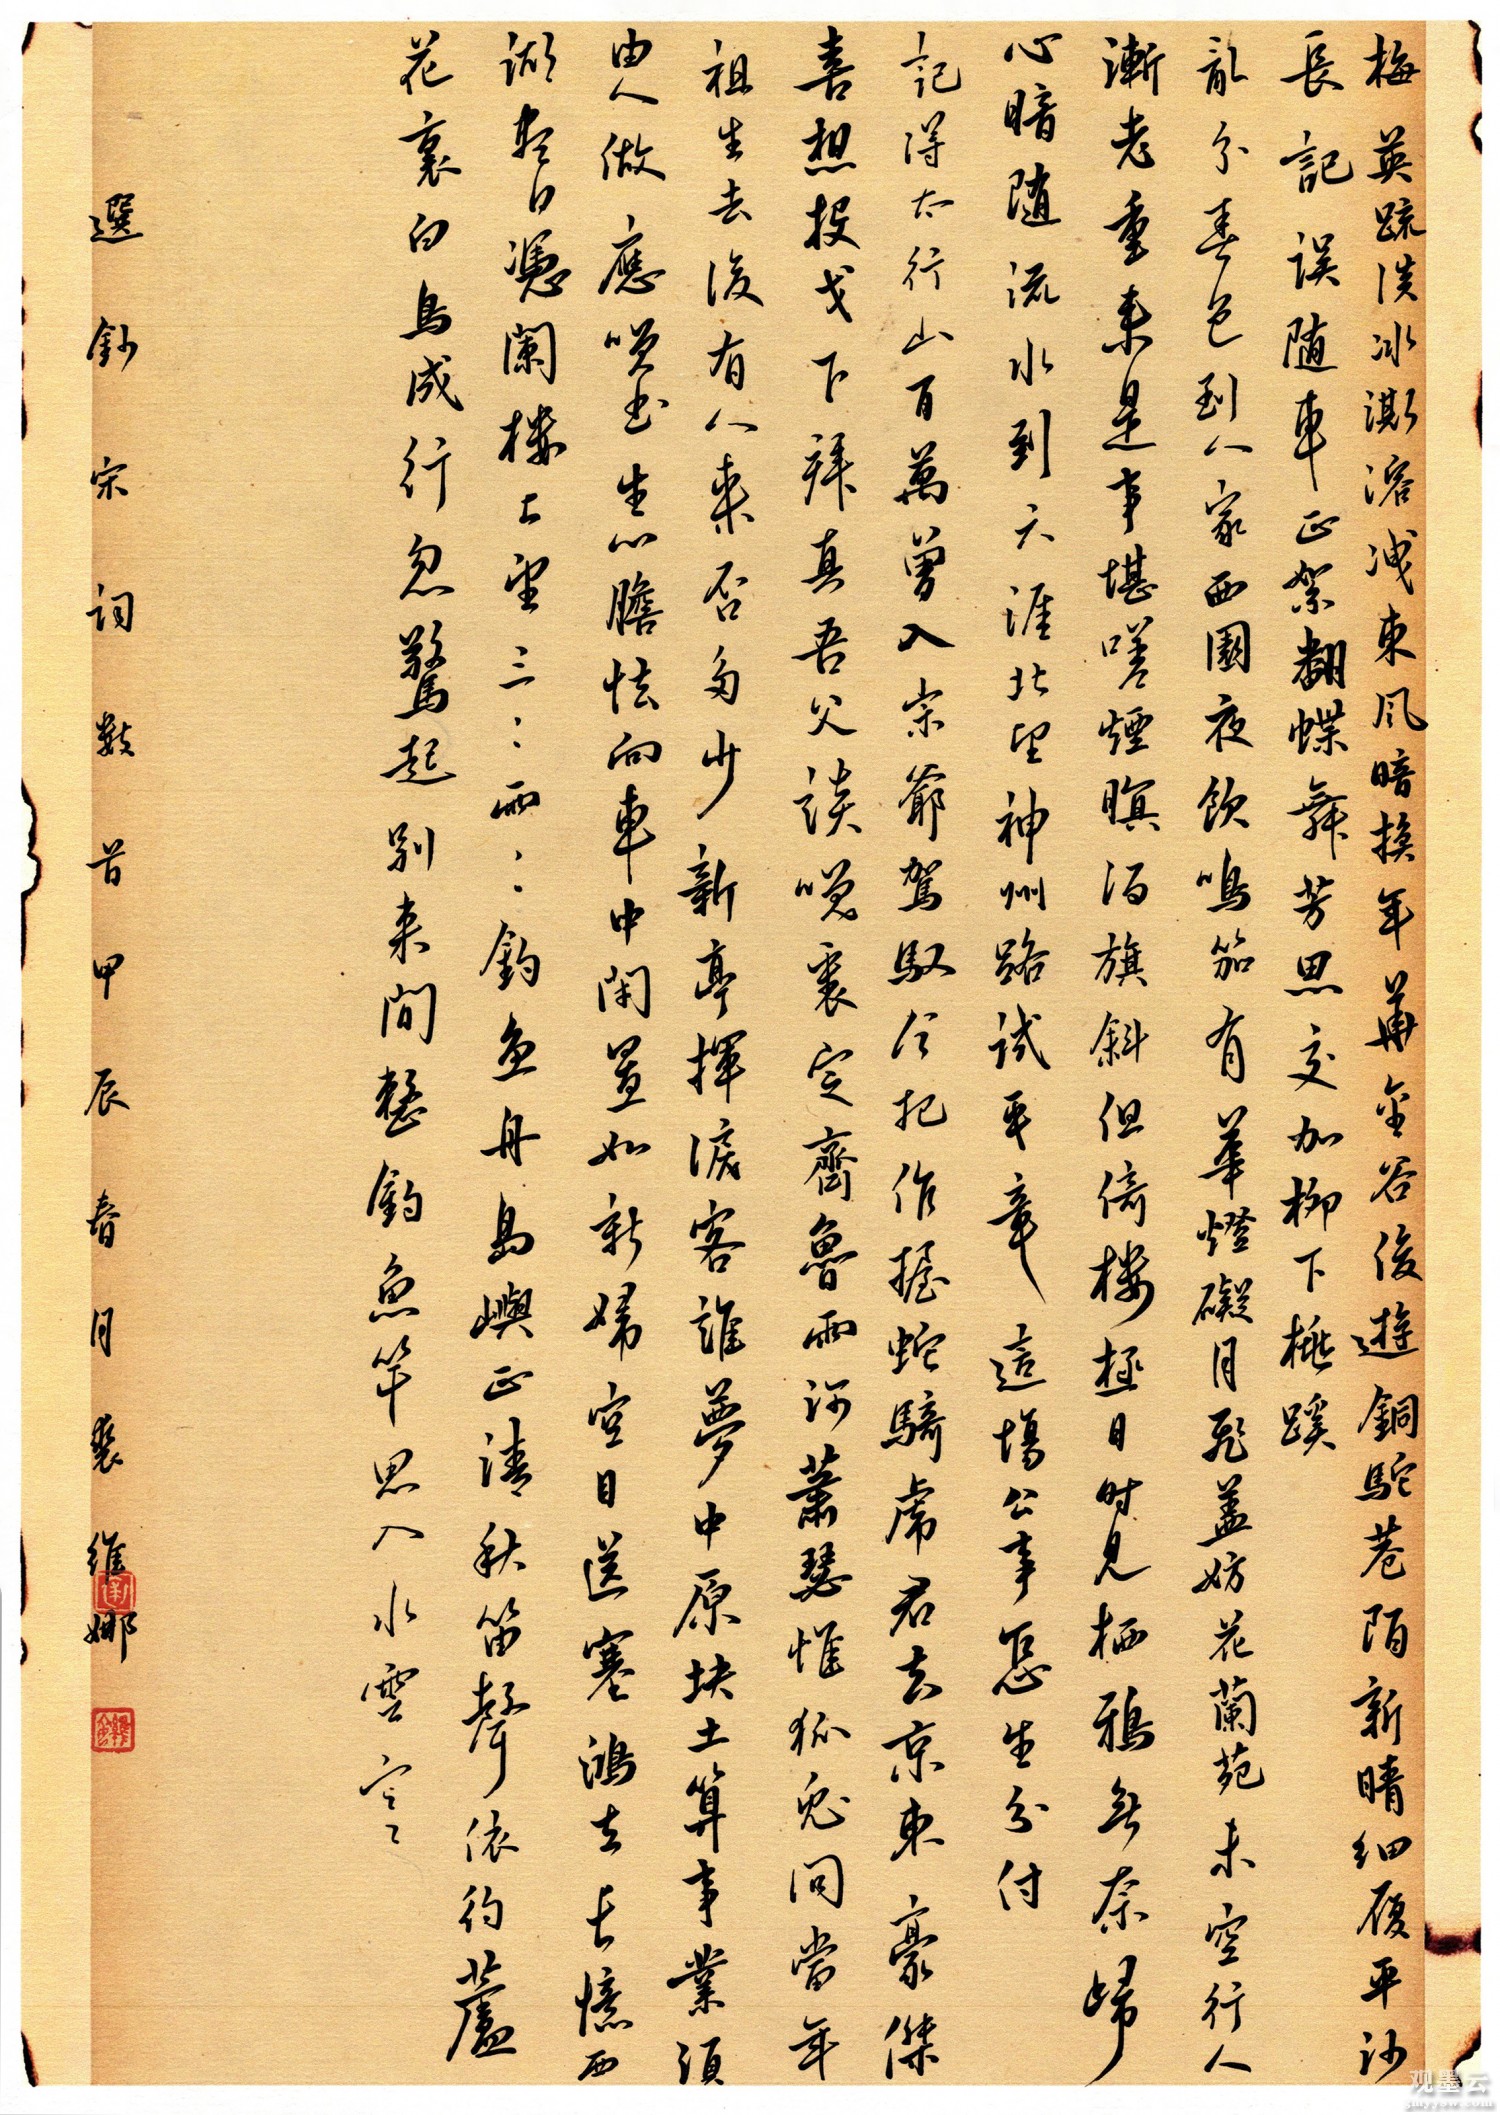 梅英疏淡冰澌溶洩東風暗換年華金谷俊遊銅駝巷陌新晴細履平沙
長記誤隨車正絮翻蝶舞芳思交加柳下桃蹊
亂分春色到人家西園夜飲鳴笳有華燈礙月飛蓋妨花蘭苑未空行人
漸老重來是事堪嗟煙暝酒旗斜但倚樓極目時見栖鴉無奈歸
心暗隨流水到天涯北望神州路試平章這場公事怎生分付
記得太行山百萬曾入宗爺駕馭今把作握蛇騎虎君去京東豪傑
喜想投戈下拜真吾父談笑裏定齊魯兩河蕭瑟惟狐兔問當年
祖生去後有人來否多少新亭揮淚客誰夢中原塊土算事業須
由人做應笑書生心膽怯向車中閉置如新婦空目送塞鴻去長憶西
湖盡日憑闌樓上望三〻兩〻釣魚舟島嶼正清秋笛聲依約蘆
花裏白鳥成行忽驚起別來閒整釣魚竿思入水雲寒
選鈔宋詞數首甲辰春月裴維娜
观墨云